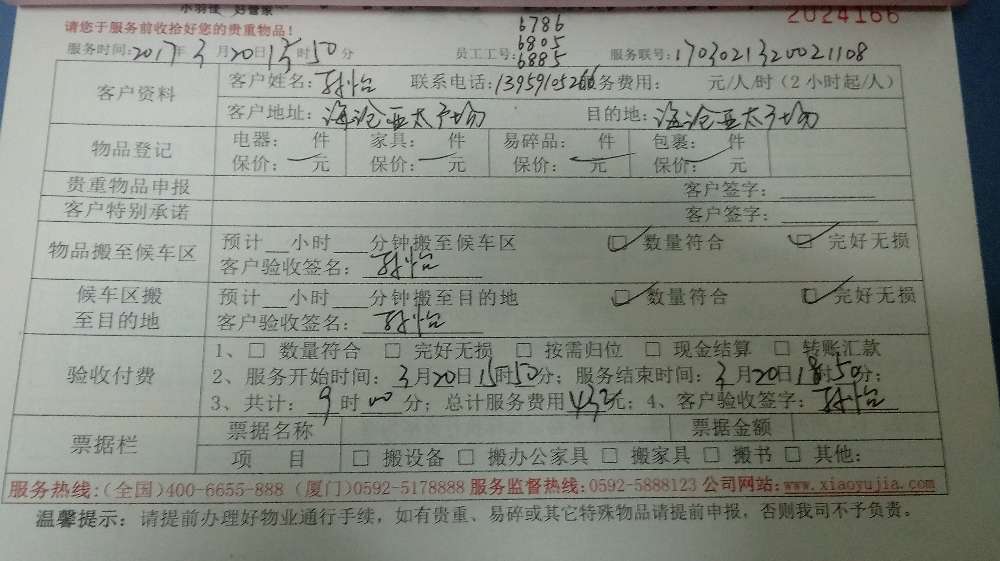 小羽佳 好管家
请您于服务前收拾好您的贵重物品!
2024166
6786
6805
6885
服务时间:2017年3月20日15时50分 员工工号: 服务联号:17030213200021108
客户资料 客户姓名:孙怡 联系电话:139591052 服务费用: 元/人/时(2小时起/人)
客户地址:海沧亚太广场 目的地:海沧亚太广场
物品登记 电器: 件 家具: 件 易碎品: 件 包裹: 件
保价: 元 保价: 元 保价: 元 保价: 元
贵重物品申报 客户签字:
客户特别承诺 客户签字:
物品搬至候车区 预计 小时 分钟搬至候车区 ☑ 数量符合 ☑ 完好无损
客户验收签名:孙怡
候车区搬至目的地 预计 小时 分钟搬至目的地 ☑ 数量符合 ☑ 完好无损
客户验收签名:孙怡
验收付费 1、□ 数量符合 □ 完好无损 □ 按需归位 □ 现金结算 □ 转账汇款
2、服务开始时间:3月20日15时50分;服务结束时间:3月20日18时50分;
3、共计:9时00分;总计服务费用432元;4、客户验收签字:孙怡
票据栏 票据名称 票据金额
项 目 □ 搬设备 □ 搬办公家具 □ 搬家具 □ 搬书 □ 其他:
服务热线:(全国)400-6655-888 (厦门)0592-5178888 服务监督热线:0592-5888123 公司网站:www.xiaoyujia.com
温馨提示:请提前办理好物业通行手续,如有贵重、易碎或其它特殊物品请提前申报,否则我司不予负责。